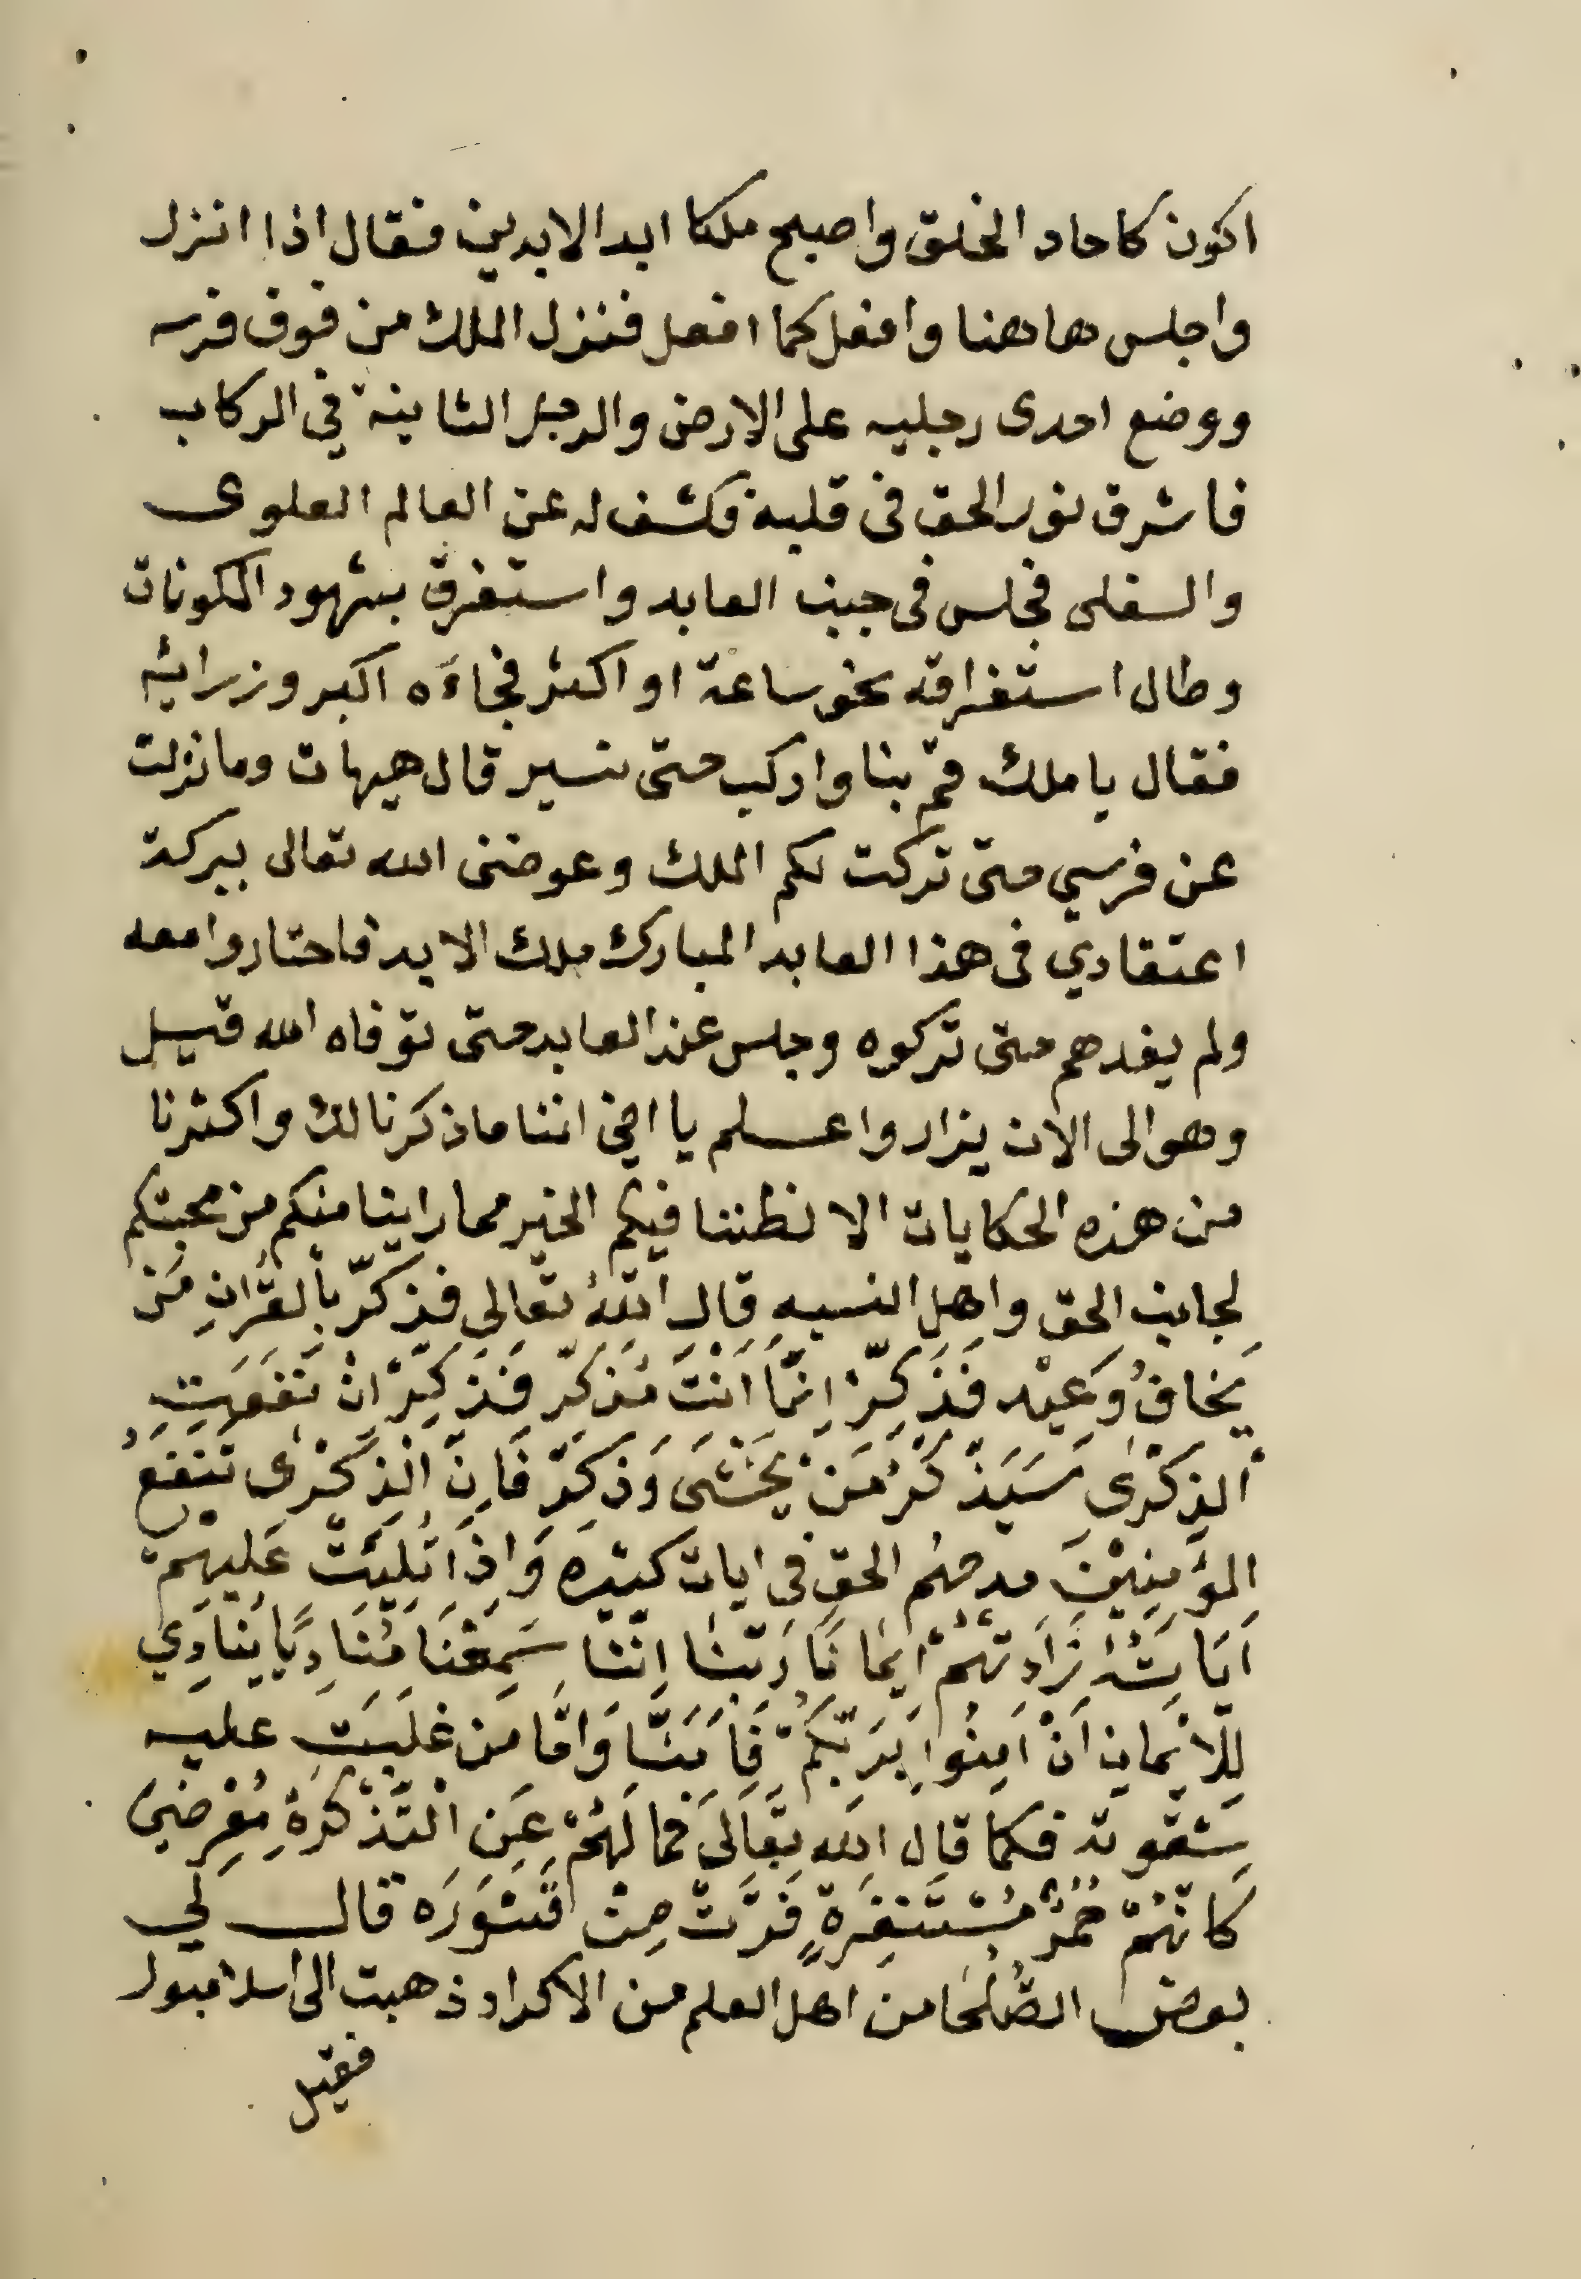 اكون كاحاد الخلق واصبح ملكا ابد الابدين فقال اذا انزل
واجلس هاهنا وافعل كما افعل فنزل الملك من فوق فرسه
ووضع احدى رجليه على الارض والرجل الثانية في الركاب
فاشرق نور الحق في قلبه فكشف له عن العالم العلوى
والسفلى فجلس في جنب العابد واستغرق بشهود المكونات
وطال استغراقه نحو ساعة او اكثر فجاءه اكبر وزرائه
فقال يا ملك قم بنا واركب حتى نسير قال هيهات وما نزلت
عن فرسي حتى تركت لكم الملك وعوضنى الله تعالى ببركة
اعتقادي في هذا العابد المبارك ملك الابد فاحتاروا معه
ولم يفدهم حتى تركوه وجلس عند العابد حتى توفاه الله قيل
وهو الى الان يزار واعلم يا اخي اننا ما ذكرنا لك واكثرنا
من هذه الحكايات الا لظننا فيكم الخير مما راينا منكم من محبتكم
لجانب الحق واهل النسبه قال اللهُ تعالى فذكّر بالقُرانِ مَن
يَخافُ وَعيْد فَذَكِّرْ اِنَّمَا اَنْتَ مُذكّر فَذَكِّرْ اِنْ نَفَعَتِ
الذِكْرٰى سَيَذَّكَرُ مَنْ يَخْشَى وَذَكِّرْ فَاِنَّ الذِكْرٰى تَنْفَعُ
المؤمِنِيْنَ مدحهُم الحق في ايات كثيره وَاِذَا تُلِيَتْ عَلَيْهِمْ
اَيَاتُهُ زَادتهُمْ اِيْمَانَا رَبَّنَا اِنَّنَا سَمِعْنَا مُنَادِيًا يُنَادِي
لِلْاِيْمَانِ اَنْ اَمِنُوا بِرَبِّكُمْ فَاَمَنَّا وَامَّا مَن غلَبَت عليه
شقوته فكما قال الله تَعَالَىَ فَما لَهُمْ عَنِ الْتَذْكِرَةِ مُعْرِضيْنَ
كَانّهُمْ حُمُرٌ مُسْتَنْفِرَةٍ فَرَّتْ مِنْ قَسْوَرَه قال لي
بعض الصُلَحَا من اهل العلم من الاكراد ذهبت الى اسلامبول
فقيل